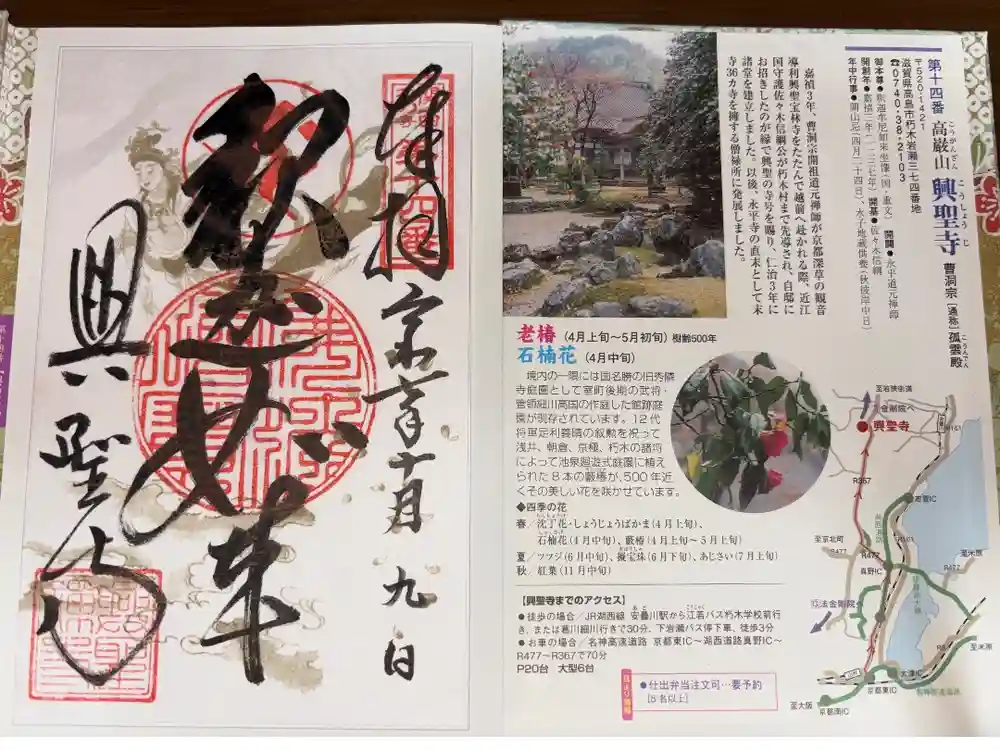 奉拝
釈迦如来
興聖寺
十月九日
第十四番 高巌山 興聖寺 曹洞宗 [通称]孤雲殿
こうがんざん こうしょうじ こうんでん
〒520-1421
滋賀県高島市朽木岩瀬三七四番地
☎0740・38・2103
御本尊●釈迦牟尼如来坐像(国・重文) 開闢●永平道元禅師
開創年●嘉禎三年(一二三七年) 開基●佐々木信綱
年中行事●開山忌(四月二十四日)、水子地蔵供養(秋彼岸中日)
嘉禎3年、曹洞宗開祖道元禅師が京都深草の観音
導利興聖宝林寺をたたんで越前へ赴かれる際、近江
国守護佐々木信綱公が朽木村まで先導され、自邸に
お招きしたのが縁で興聖の寺号を賜り、仁治3年に
諸堂を建立しました。以後、永平寺の直末として末
寺36カ寺を擁する僧録所に発展しました。
老椿(4月上旬〜5月初旬)樹齢500年
石楠花(4月中旬)
境内の一隅には国名勝の旧秀隣
寺庭園として室町後期の武将・
管領細川高国の作庭した館跡庭
園が現存されています。12代
将軍足利義晴の叙勲を祝って
浅井、朝倉、京極、朽木の諸将
によって池泉廻遊式庭園に植え
られた8本の藪椿が、500年近
くその美しい花を咲かせています。
◆四季の花
春/沈丁花・しょうじょうばかま(4月上旬)、
石楠花(4月中旬)、藪椿(4月上旬〜5月上旬)
夏/ツツジ(6月中旬)、擬宝珠(6月下旬)、あじさい(7月上旬)
秋/紅葉(11月中旬)
【興聖寺までのアクセス】
●徒歩の場合/JR湖西線 安曇川駅から江若バス朽木学校前行
き、または葛川細川行きで30分、下岩瀬バス停下車、徒歩3分
●お車の場合/名神高速道路 京都東IC〜湖西道路真野IC〜
R477〜R367で70分
P20台 大型6台
●仕出弁当注文可…要予約
[5名以上]
至若狭街道
金剛院へ
興聖寺
R161
R367
至京北町
R477
R477
真野IC
R161
至米原
R477
⑬法金剛院へ
至米原
大津IC
京都東IC
名神高速道路
至大阪
京都南IC